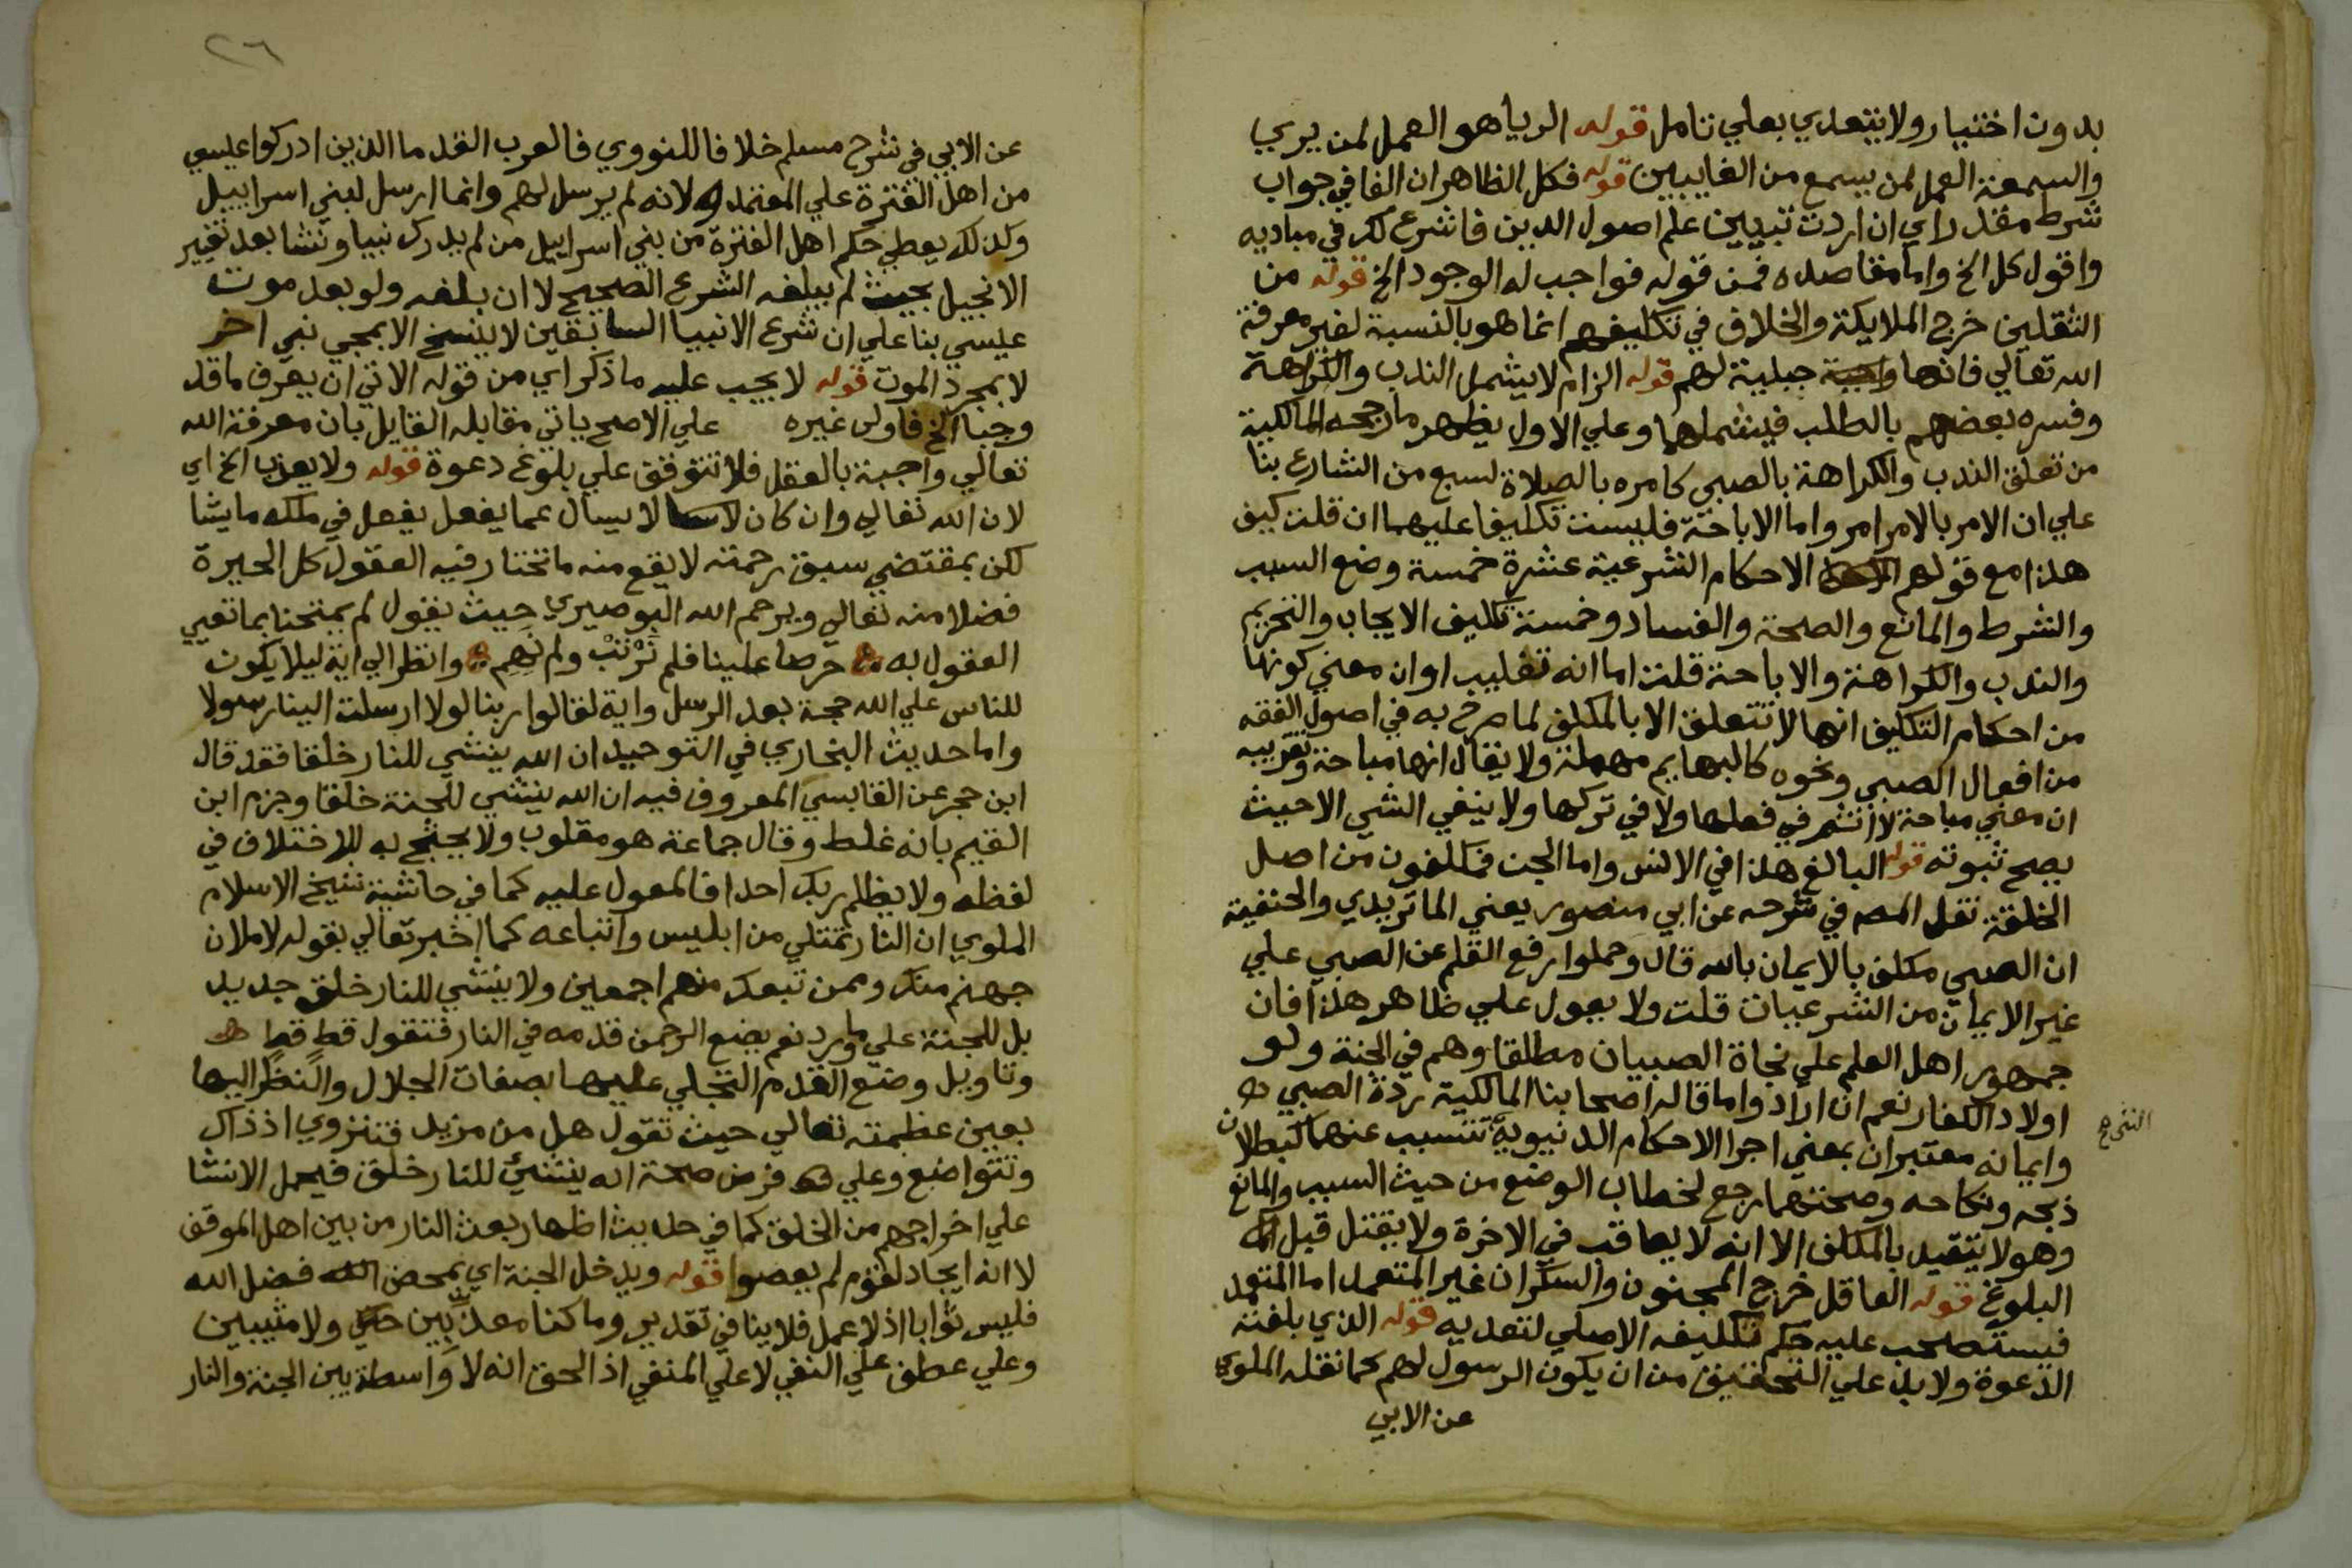 بدون اختيار ولا يتعدي بعلي تامل قوله الريا هو العمل لمن يري
والسمعة العمل لمن يسمع من الغايبين قوله فكل الظاهر ان الفا في جواب
شرط مقدر اي ان اردت تبيين علم اصول الدين فاشرع لك في مباديه
واقول كل الخ واما مقاصده فمن قوله فواجب له الوجود الخ قوله من
الثقلين خرج الملايكة والخلاف في تكليفهم انما هو بالنسبة لغير معرفة
الله تعالي فانها جبلية لهم قوله الزام لا يشمل الندب والكراهة
وفسره بعضهم بالطلب فيشملهما وعلي الاول يظهر ما رجحه المالكية
من تعلق الندب والكراهة بالصبي كامره بالصلاة لسبع من الشارع بنا
علي ان الامر بالامر امر واما الاباحة فليست تكليفا عليهما ان قلت كيف
هذا مع قولهم الاحكام الشرعية عشرة خمسة وضع السبب
والشرط والمانع والصحة والفساد وخمسة تكليف الايجاب والتحريم
والندب والكراهة والاباحة قلت اما انه تغليب او ان معني كونها
من احكام التكليف انها لا تتعلق الا بالمكلف لما صرح به في اصول الفقه
من افعال الصبي ونحوه كالبهايم مهملة ولا يقال انها مباحة وتقريبه
ان معني مباحة لا اثم في فعلها ولا في تركها ولا ينفي الشي الا حيث
يصح ثبوته قوله البالغ هذا في الانس واما الجن فمكلفون من اصل
الخلقة نقل المصم في شرحه عن ابي منصور يعني الماتريدي والحنفية
ان الصبي مكلف بالايمان بالله قال وحملوا رفع القلم عن الصبي علي
غير الايمان من الشرعيات قلت ولا يعول علي ظاهر هذا فان
جمهور اهل العلم علي نجاة الصبيان مطلقا وهم في الجنة ولو
اولاد الكفار نعم ان اراد واما قاله اصحابنا المالكية ردة الصبي
وايمانه معتبران بمعني اجرا الاحكام الدنيوية تتسبب عنهما كبطلان
ذبحه ونكاحه وصحتهما رجع لخطاب الوضع من حيث السبب والمانع
وهو لا يتقيد بالمكلف الا انه لا يعاقب في الاخرة ولا يقتل قبل
البلوغ قوله العاقل خرج المجنون والسكران غير المتعمد اما المتعمد
فيستصحب عليه حكم تكليفه الاصلي لتعديه قوله الذي بلغته
الدعوة ولا بد علي التحقيق من ان يكون الرسول لهم كما نقله الملوي
عن الابي
٢٦
عن الابي في شرح مسلم خلافا للنووي فالعرب القدما الذين ادركوا عيسي
من اهل الفترة علي المعتمد لانه لم يرسل لهم وانما ارسل لبني اسراييل
وكذلك يعطي حكم اهل الفترة من بني اسراييل من لم يدرك نبيا ونشا بعد تغيير
الانجيل بحيث لم يبلغه الشرع الصحيح لا ان بلغه ولو بعد موت
عيسي بنا علي ان شرع الانبيا السابقين لا ينسخ الا بمجي نبي اخر
لا بمجرد الموت قوله لا يجب عليه ما ذكر اي من قوله الاتي ان يعرف ما قد
وجبا الخ فاولى غيره علي الاصح ياتي مقابله القايل بان معرفة الله
تعالي واجبة بالعقل فلا تتوقف علي بلوغ دعوة قوله ولا يعذب الخ اي
لان الله تعالي وان كان لا يسال عما يفعل يفعل في ملكه ما يشا
لكن بمقتضي سبق رحمته لا يقع منه ما تحتار فيه العقول كل الحيرة
فضلا منه تعالي ويرحم الله البوصيري حيث يقول لم يمتحنا بما تعيي
العقول به حرصا علينا فلم نرتب ولم نهم وانظر الي اية ليلا يكون
للناس علي الله حجة بعد الرسل واية لقالوا ربنا لولا ارسلت الينا رسولا
واما حديث البخاري في التوحيد ان الله ينشي للنار خلقا فقد قال
ابن حجر عن القابسي المعروف فيه ان الله ينشي للجنة خلقا وجزم ابن
القيم بانه غلط وقال جماعة هو مقلوب ولا يحتج به للاختلاف في
لفظه ولا يظلم ربك احدا فالمعول عليه كما في حاشية شيخ الاسلام
الملوي ان النار تمتلي من ابليس واتباعه كما اخبر تعالي بقوله لاملان
جهنم منك وممن تبعك منهم اجمعين ولا ينشي للنار خلق جديد
بل للجنة علي ما ورد نعم يضع الرحمن قدمه في النار فتقول قط قط
وتاويل وضع القدم التجلي عليها بصفات الجلال والنظر اليها
بعين عظمته تعالي حيث تقول هل من مزيد فتنزوي اذ ذاك
وتتواضع وعلي فرض صحة انه ينشئ للنار خلق فيحمل الانشا
علي اخراجهم من الخلق كما في حديث اظهار بعث النار من بين اهل الموقف
لا انه ايجاد لقوم لم يعصوا قوله ويدخل الجنة اي بمحض فضل الله
فليس ثوابا اذ لا عمل فلا ينافي تقدير وما كنا معذبين ولا مثيبين
وعلي عطف علي النفي لا علي المنفي اذ الحق انه لا واسطة بين الجنة والنار